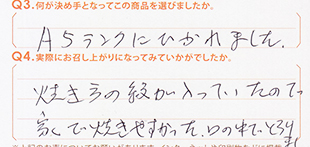 Q3.何が決め手となってこの商品を選びましたか。
A5ランクにひかれました.
Q4.実際にお召し上がりになってみていかがでしたか。
焼き方の紋が入っていたので
で焼きやすかった.口の中でとろり